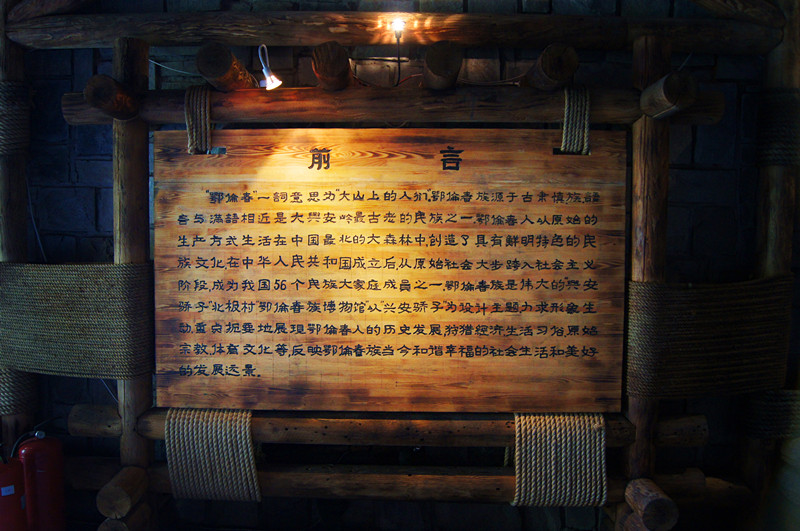 前言
"鄂倫春"一詞意思为"大山上的人们",鄂倫春族源于古肃慎族,語
言与满語相近是大兴安岭最古老的民族之一,鄂倫春人从原始的
生产方式生活在中国最北的大森林中,創造了具有鲜明特色的民
族文化,在中华人民共和国成立后,从原始社会大步跨入社会主义
阶段,成为我国56个民族大家庭成员之一,鄂倫春族是伟大的兴安
骄子"北极村"鄂倫春族博物馆"从"兴安骄子"为設计主题力求形象生
动重点扼要地展現鄂倫春人的历史发展,狩猎经济生活习俗原始
宗教,体育文化等,反映鄂倫春族当今和谐幸福的社会生活和美好
的发展远景.